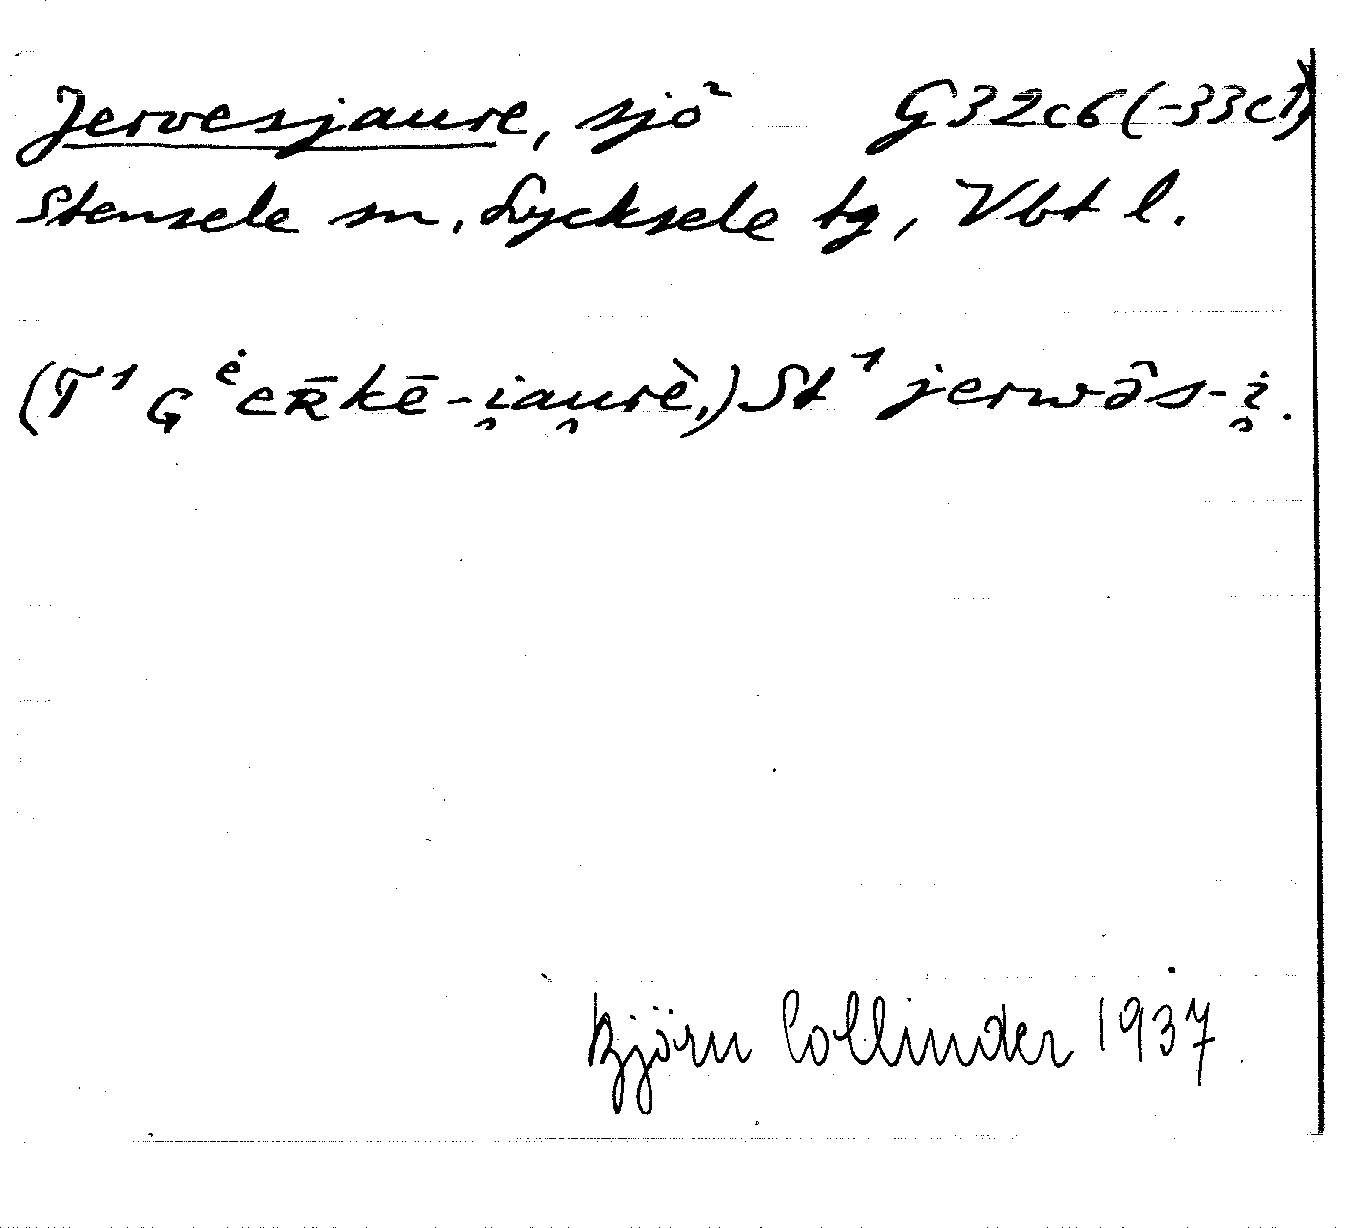 Jervesjaure, sjö G32c6(-33c1)
Stensele sn, Lycksele tg, Vbt l.
(T¹ Gᵉ̇eʀ̄kē-i̯au̯rè,) St¹ jerwə̂s-i̯.
Björn Collinder 1937